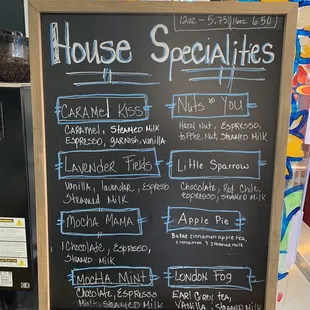 12oz - 5.75 16oz 6.50
House Specialities
Caramel Kiss
Caramel, Steamed Milk
Espresso, garnish, vanilla
Lavender Fields
Vanilla, lavender, Espresso
Steamed Milk
Mocha Mama
Chocolate, Espresso,
Steamed Milk
Mocha Mint
Chocolate, Espresso
Steamed Milk
Nuts to You
Hazel Nut, Espresso,
toffee Nut, Steamed Milk
Little Sparrow
Chocolate, Red Chile,
Espresso, Steamed Milk
Apple Pie
Baked cinnamon apple tea,
cinnamon & steamed milk
London Fog
Earl Grey tea,
Vanilla, Steamed Milk